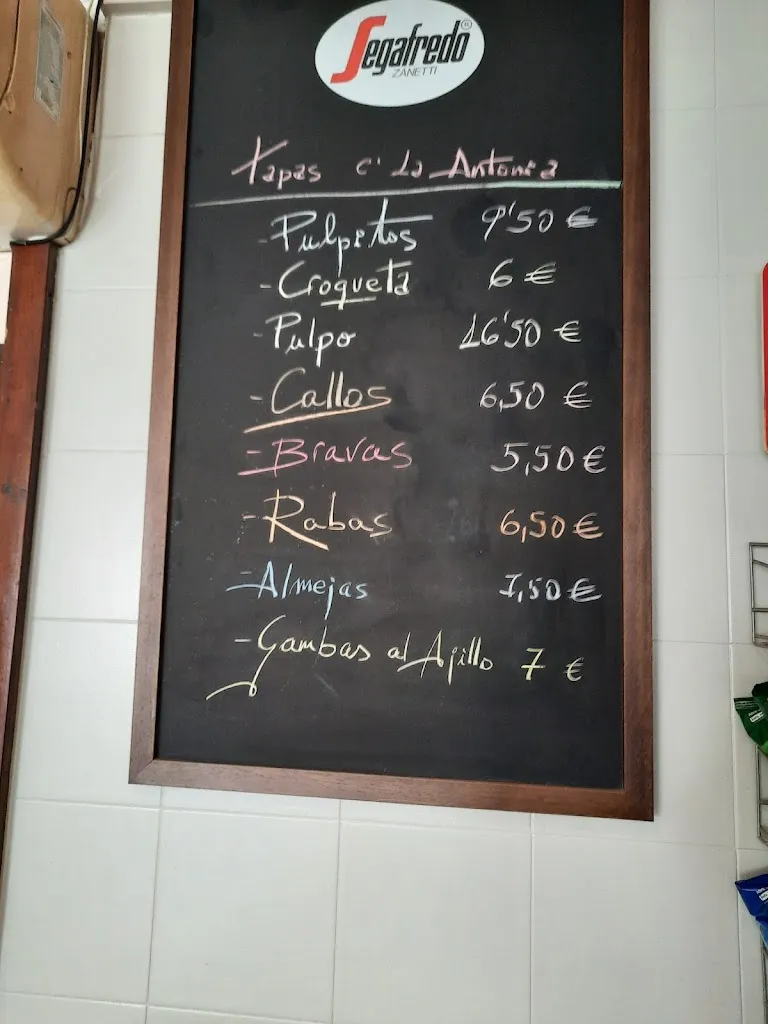 Segafredo
ZANETTI
Tapas c' La Antonia
- Pulpitos 9'50 €
- Croqueta 6 €
- Pulpo 16'50 €
- Callos 6,50 €
- Bravas 5,50 €
- Rabas 6,50 €
- Almejas 7,50 €
- Gambas al Ajillo 7 €